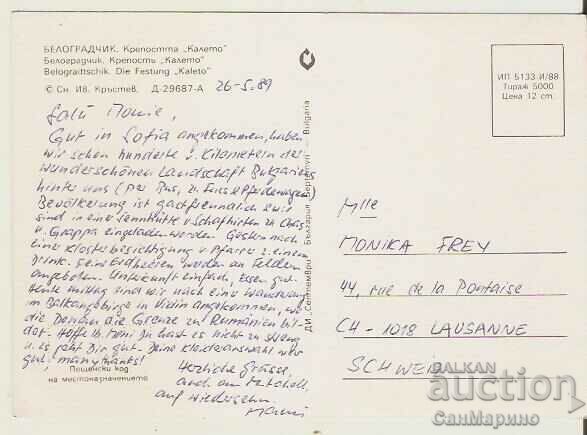 БЕЛОГРАДЧИК. Крепостта „Калето"
Белоградчик. Крепость „Калето"
Belograttschik. Die Festung „Kaleto"
© Сн. Ив. Кръстев. Д-29687-А 26-5.89
Salü Monie,
Gut in Sofia angekommen, haben
wir schon hunderte v. Kilometern der
wunderschönen Landschaft Bulgariens
hinter uns (per Bus, zu Fuss & Pferdewagen
Bevölkerung ist gastfreundlich & wir
sind in eine Sennhütte v Schafhirten zu
u. Grappa eingeladen worden. Gestern nach
einer Klosterbesichtigung v Pfarrer z. einem
Drink. Erdbeeren wurden an Feldern
angeboten. Unterkunft einfach, Essen gut.
Heute mittag sind wir nach einer Wanderung
im Balkangebirge in Vidin angekommen, wo
die Donau die Grenze zu Rumänien bil-
det. Hoffe lb. Moni Du hast es nicht zu streng
u. es geht Dir gut. Deine Kleiderauswahl war
gut, many thanks!
Herzliche Grüsse,
auch an
auf Wiedersehn.
Пощенски код
на местоназначението
ДИ „Септември" България Septemvri – Bulgaria
ИП 5133-И/88
Тираж 5000
Цена 12 ст.
Mlle
MONIKA FREY
44, rue de la Pontaise
CH - 1018 LAUSANNE
SCHWEIZ
BALKAN
auction
СанМарино